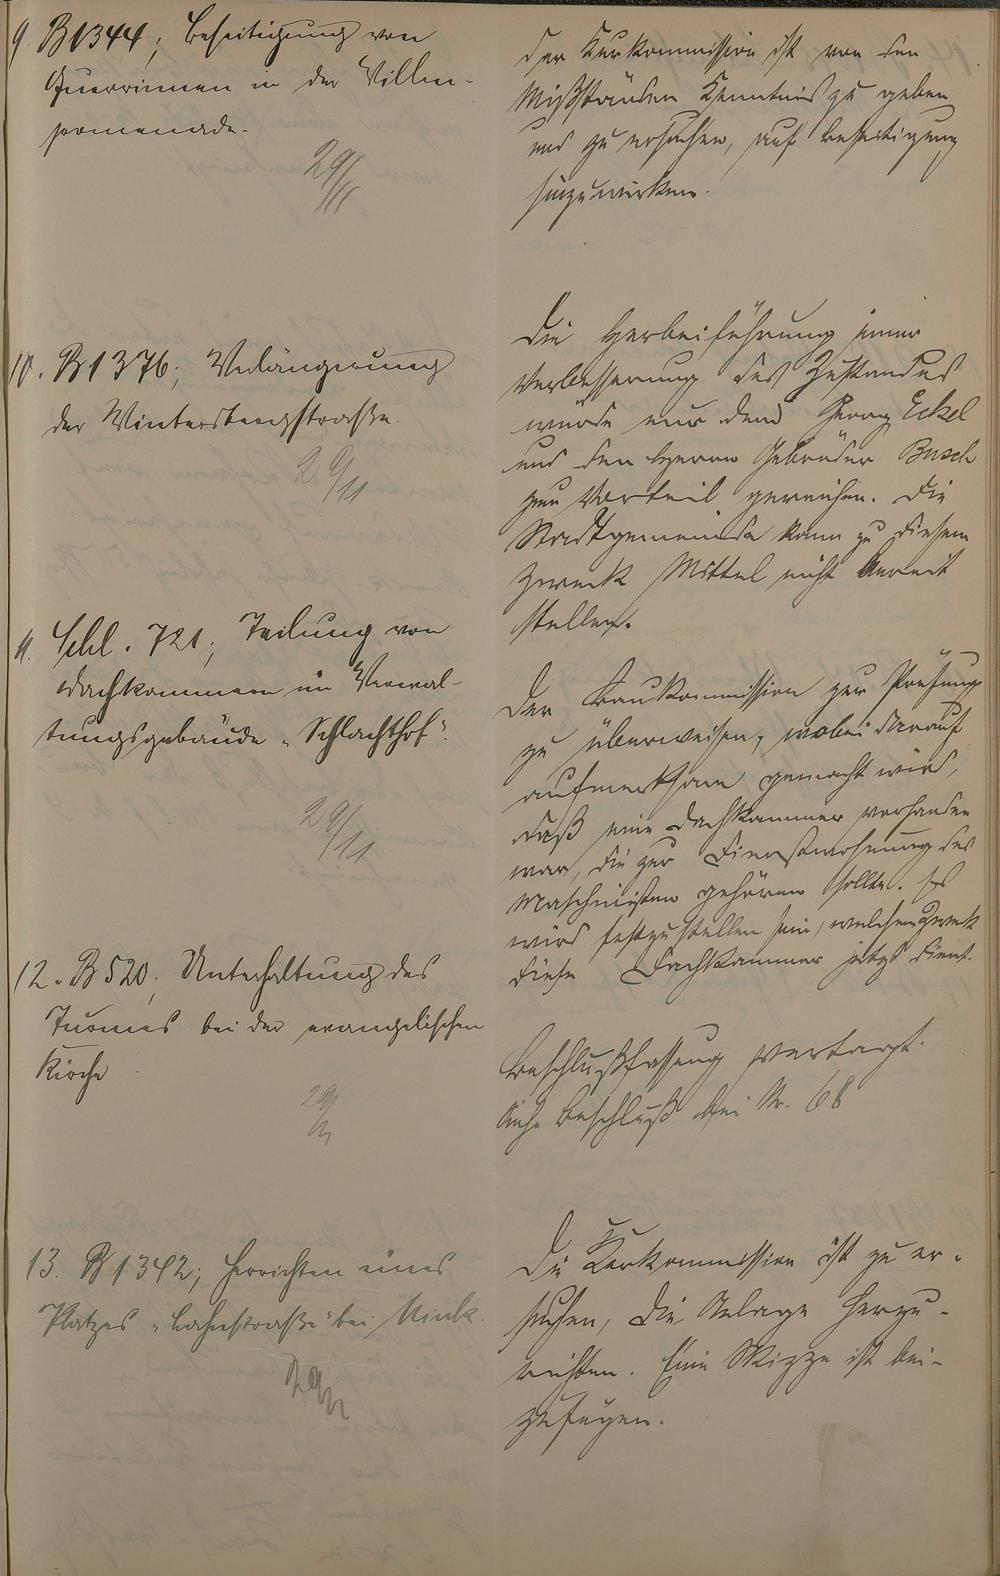 9. B 1344; Beseitigung von
Querrinnen in der Villen-
promenade.
29/11
Der Kurkommission ist von den
Mißständen Kenntnis zu geben
und zu ersuchen, auf Beseitigung
hinzuwirken.
10. B 1376; Verlängerung
der Wintersbergstraße.
29/11
Die Herbeiführung einer
Verbesserung des Zustandes
würde nur dem Georg Eckel
und den Herren Gebrüder Busch
zum Vorteil gereichen. Die
Stadtgemeinde kann zu diesem
Zweck Mittel nicht bereit
stellen.
11. Schl. 721; Teilung von
Dachkammern im Verwal-
tungsgebäude "Schlachthof".
29/11
Der Baukommission zur Prüfung
zu überweisen, wobei darauf
aufmerksam gemacht wird,
daß eine Dachkammer vorhanden
war, die zur Dienstwohnung des
Maschinisten gehören sollte. Es
wird festzustellen sein, welchem Zweck
diese Dachkammer jetzt dient.
12. B 520; Unterhaltung des
Turmes bei der evangelischen
Kirche
29/11
Beschlußfassung vertagt.
Siehe Beschluß bei Nr. 68
13. B 1342; Herrichten eines
Platzes "Lahnstraße" bei
29/11
Die Kurkommission ist zu er-
suchen, die Anlage herzu-
richten. Eine Skizze ist bei-
zufügen.